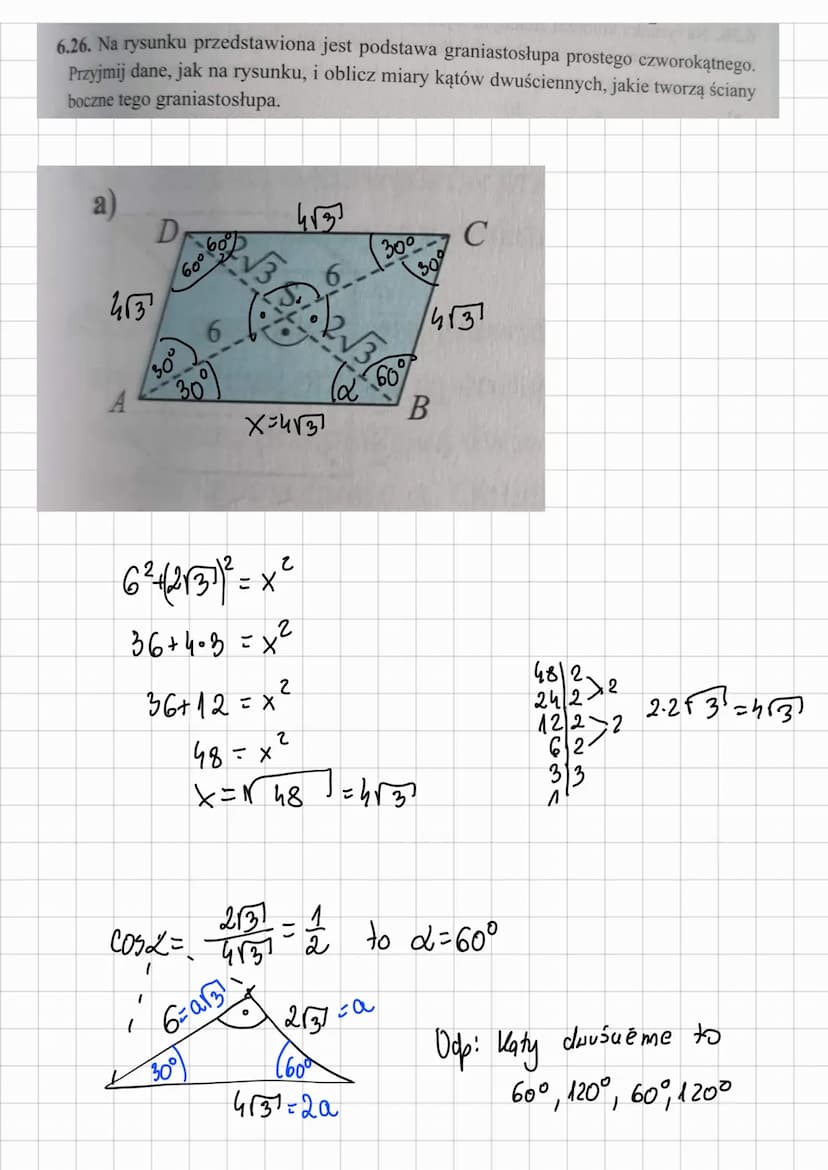 6.26. Na rysunku przedstawiona jest podstawa graniastosłupa prostego czworokątnego.
Przyjmij dane, jak na rysunku, i oblicz miary kątów dwuściennych, jakie tworzą ściany
boczne tego graniastosłupa.
a)
4√3
D 60° 2√3 30° C
60° 6 30°
4√3 S 4√3
6 2√3
30° 60°
A 30° α B
x=4√3
6²+(2√3)² = x²
36+4·3 = x²
36+12 = x²
48 = x²
x=√48 = 4√3
48|2
24|2 >2
12|2 >2
6|2
3|3
1
2·2√3 = 4√3
cosα = 2√3/4√3 = 1/2 to α=60°
6=a√3 2√3 =a
30° 60°
4√3=2a
Odp: Kąty dwuścienne to
60°, 120°, 60°, 120°